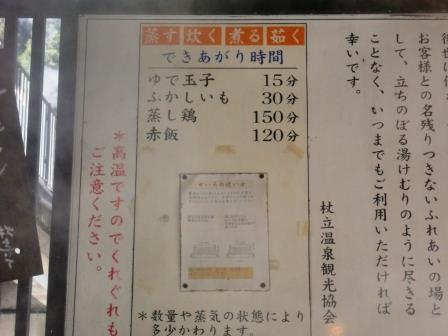 蒸す 炊く 煮る 茹く
できあがり時間
ゆで玉子 15分
ふかしいも 30分
蒸し鶏 150分
赤飯 120分
せいろの使い方
*数量や蒸気の状態により
多少かわります。
お客様との名残りつきないふれあいの場と
して、立ちのぼる湯けむりのように尽きる
ことなく、いつまでもご利用いただければ
幸いです。
杖立温泉観光協会
*高温ですのでくれぐれも
ご注意ください。